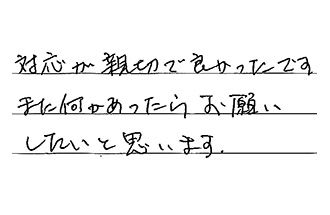 対応が親切で良かったです
また何かあったらお願い
したいと思います.